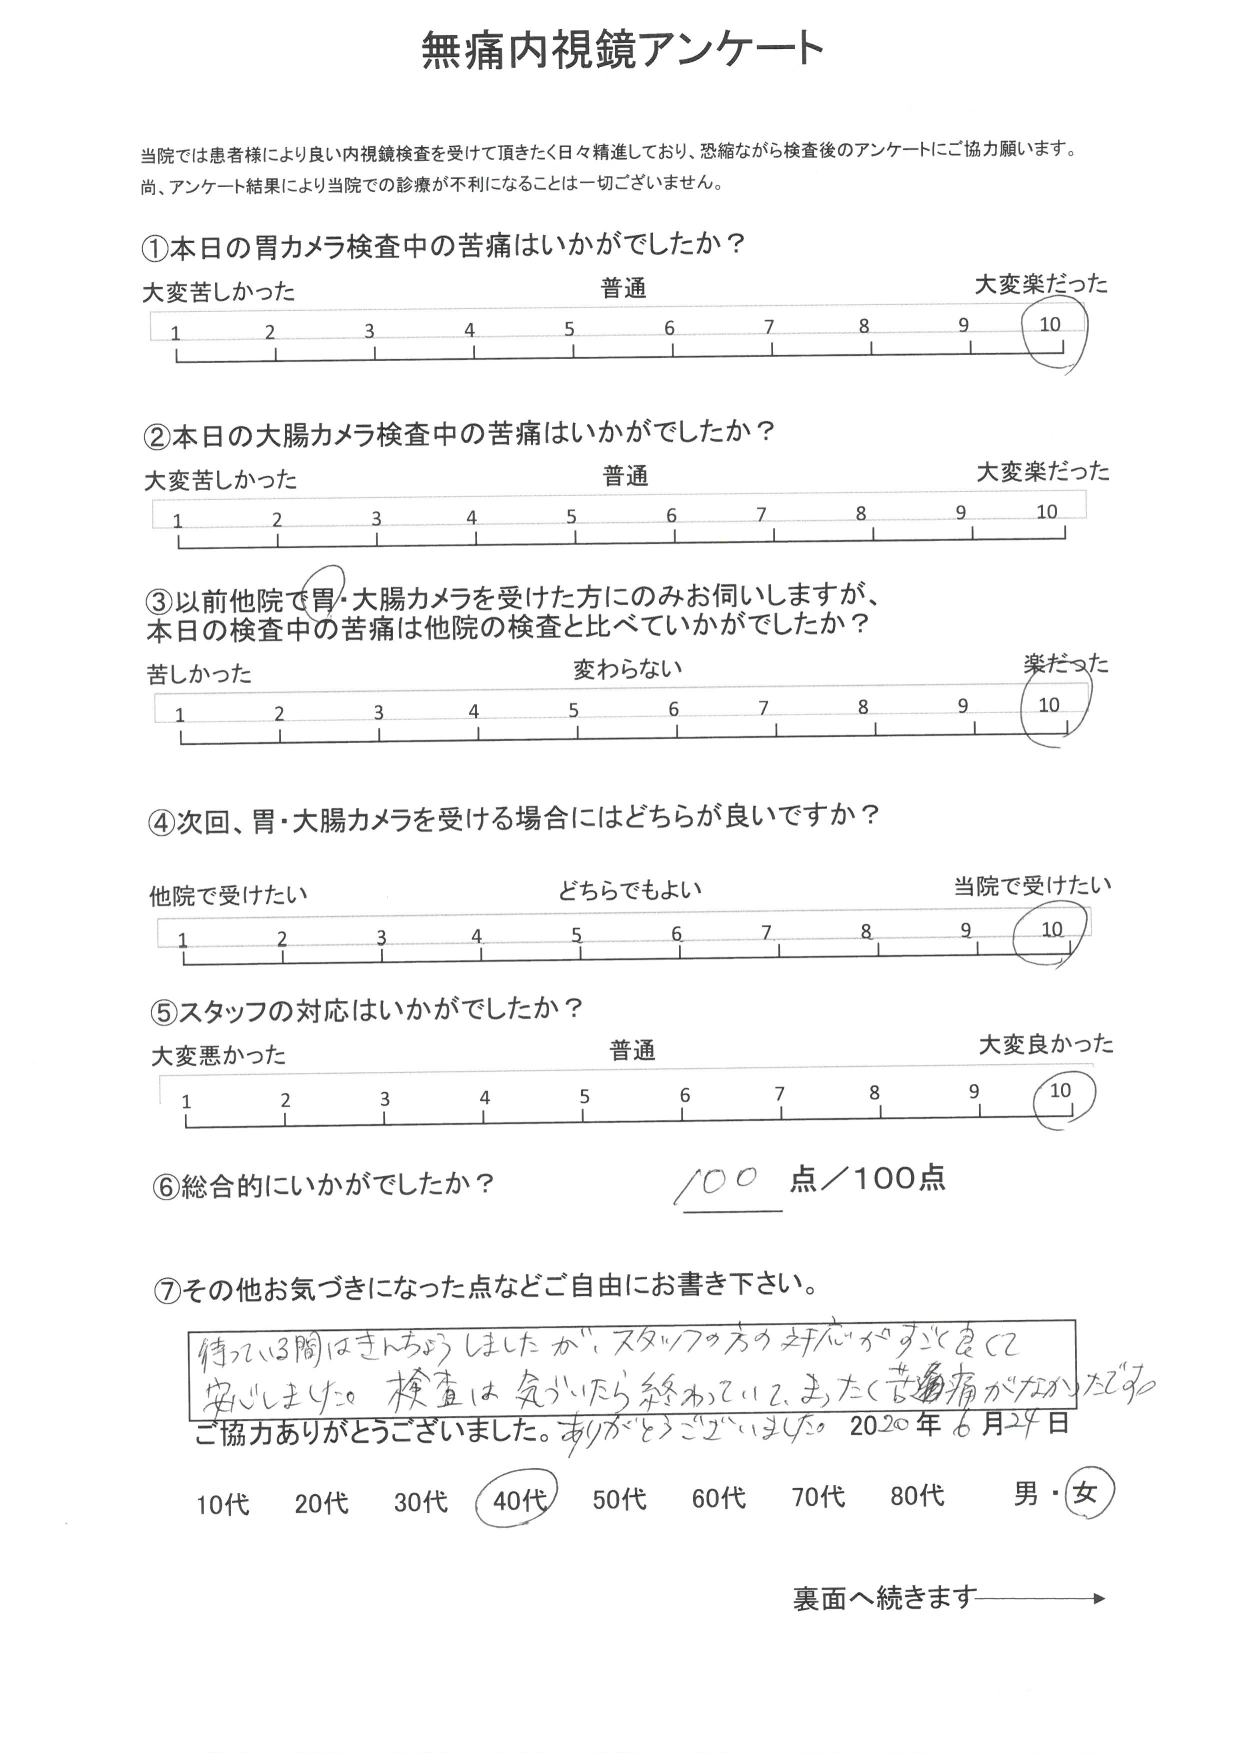 無痛内視鏡アンケート
当院では患者様により良い内視鏡検査を受けて頂きたく日々精進しており、恐縮ながら検査後のアンケートにご協力願います。
尚、アンケート結果により当院での診療が不利になることは一切ございません。
①本日の胃カメラ検査中の苦痛はいかがでしたか？
大変苦しかった 普通 大変楽だった
1 2 3 4 5 6 7 8 9 10
②本日の大腸カメラ検査中の苦痛はいかがでしたか？
大変苦しかった 普通 大変楽だった
1 2 3 4 5 6 7 8 9 10
③以前他院で胃・大腸カメラを受けた方にのみお伺いしますが、
本日の検査中の苦痛は他院の検査と比べていかがでしたか？
苦しかった 変わらない 楽だった
1 2 3 4 5 6 7 8 9 10
④次回、胃・大腸カメラを受ける場合にはどちらが良いですか？
他院で受けたい どちらでもよい 当院で受けたい
1 2 3 4 5 6 7 8 9 10
⑤スタッフの対応はいかがでしたか？
大変悪かった 普通 大変良かった
1 2 3 4 5 6 7 8 9 10
⑥総合的にいかがでしたか？ 100 点／100点
⑦その他お気づきになった点などご自由にお書き下さい。
待っている間はきんちょうしましたが、スタッフの方の対応がすごく良くて
安心しました。検査は気づいたら終わっていて、まったく苦痛がなかったです。
ご協力ありがとうございました。ありがとうございました。 2020年 6月24日
10代 20代 30代 40代 50代 60代 70代 80代 男・女
裏面へ続きます